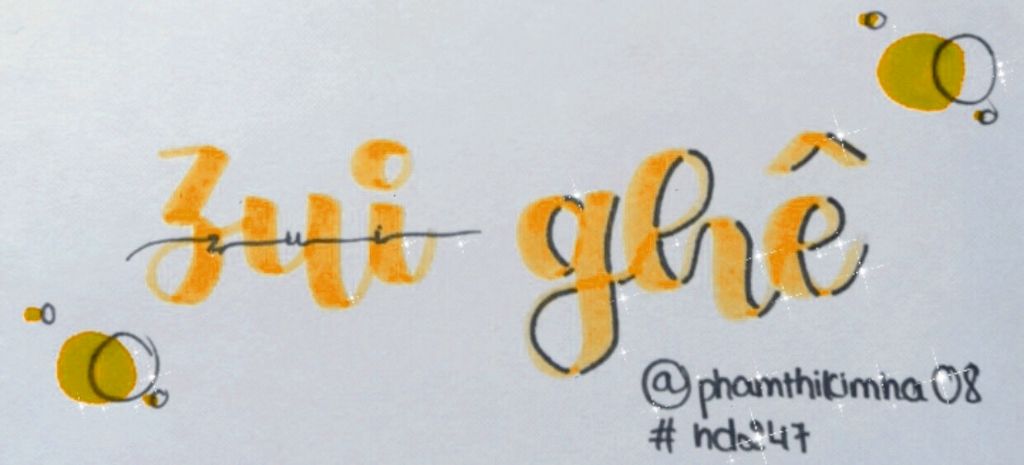 zui ghê
zui
@phamthikimna08